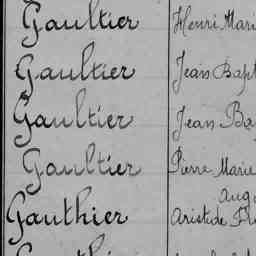 Gaultier Henri Mari
Gaultier Jean Bapt
Gaultier Jean Ba
Gaultier Pierre Marie
Aug
Gauthier Aristide